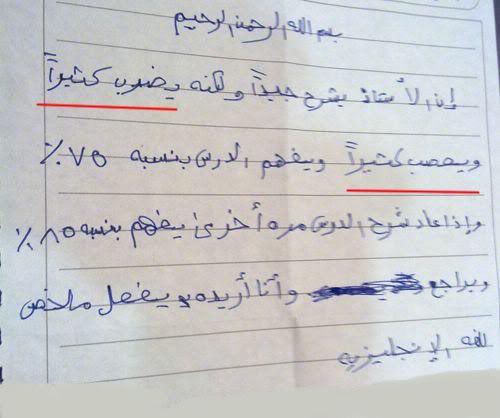 بسم الله الرحمن الرحيم
إن الأستاذ يشرح جيداً ولكنه يضرب كثيراً
ويعصب كثيراً ويفهم الدرس بنسبه ٧٥٪
وإذا عاد شرح الدرس مره أخرى يفهم بنسبه ٨٥٪
ويراجع وأنا أريده يفعل ملخص
للغه الإنجليزيه